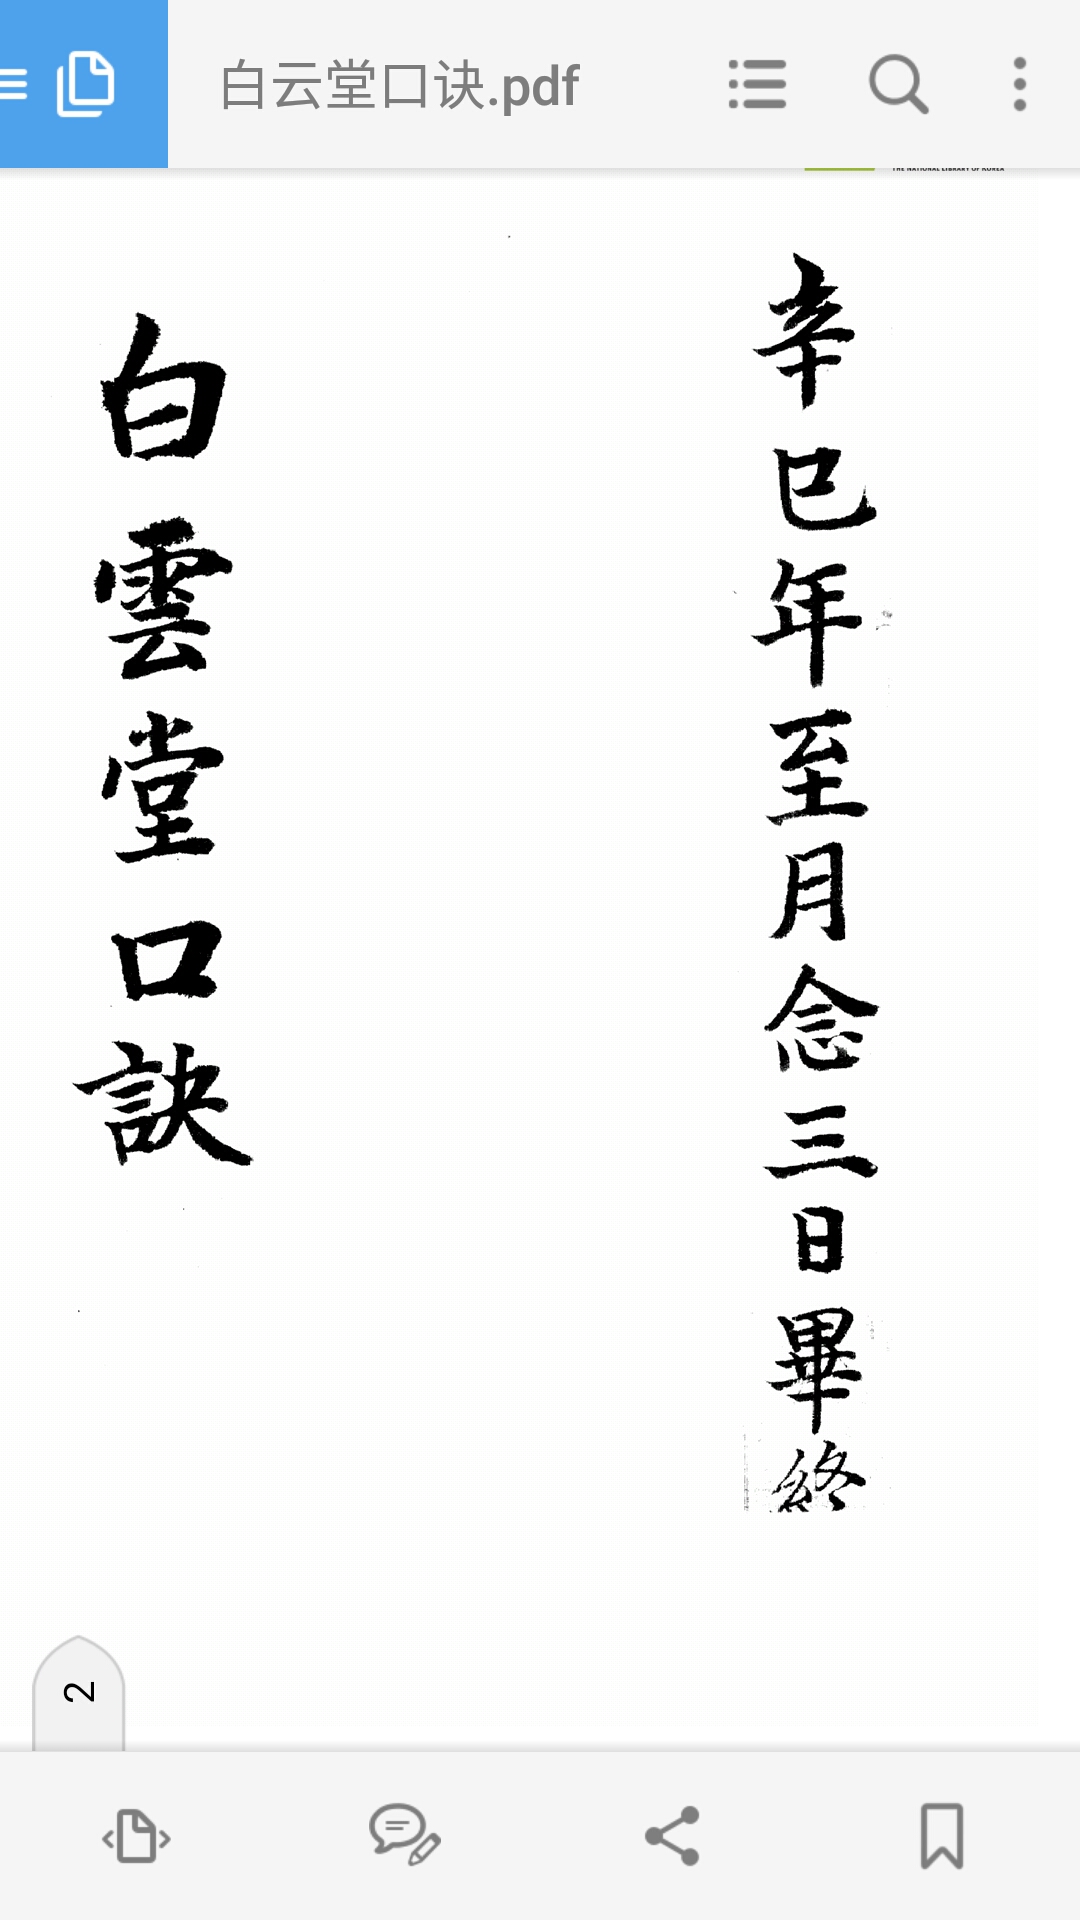 白云堂口诀.pdf
THE NATIONAL LIBRARY OF KOREA
辛巳年至月念三日畢終
白雲堂口訣
2